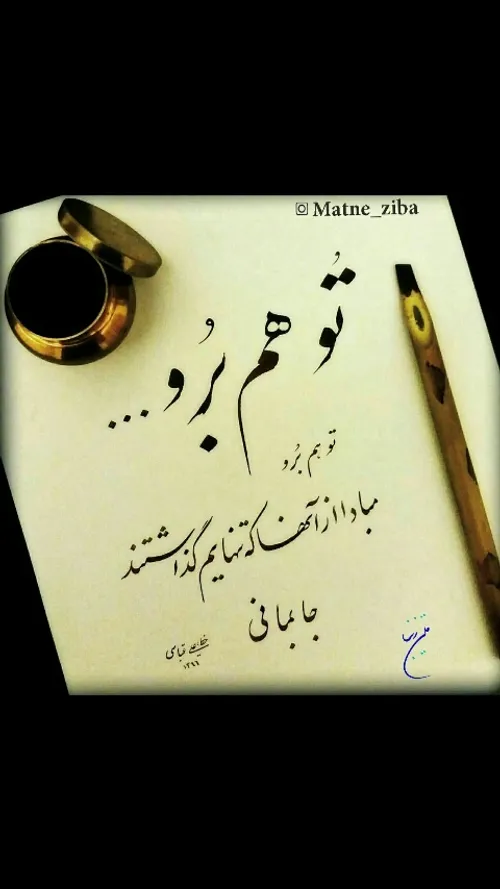 Matne_ziba
تُو هم بُرو...
تو هم بُرو
مبادا از آنها که تنهایم گذاشتند
جا بمانی
متن زیبا